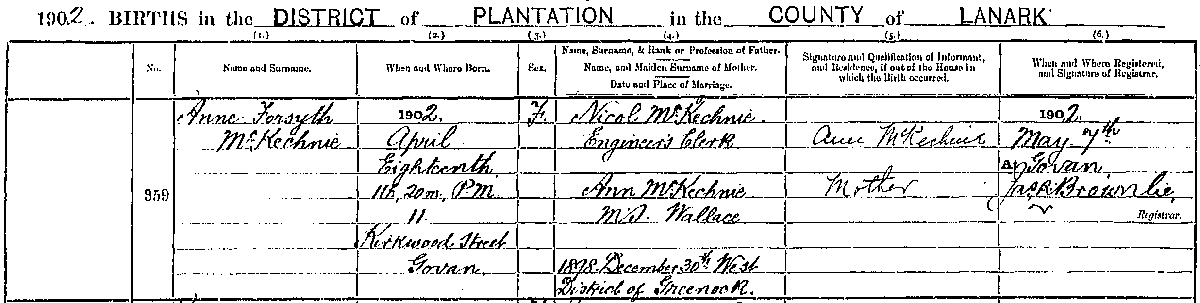 1902. BIRTHS in the DISTRICT of PLANTATION in the COUNTY of LANARK
(1.) (2.) (3.) (4.) (5.) (6.)
No.
Name and Surname.
When and Where Born.
Sex.
Name, Surname, & Rank or Profession of Father.
Name, and Maiden Surname of Mother.
Date and Place of Marriage.
Signature and Qualification of Informant,
and Residence, if out of the House in
which the Birth occurred.
When and Where Registered,
and Signature of Registrar.
959
Anne Forsyth
McKechnie
1902.
April
Eighteenth
11h. 20m. P.M.
11
Kirkwood Street
Govan.
F.
Nicol McKechnie.
Engineer's Clerk
Ann McKechnie
M.S. Wallace
1898. December 30th West
District of Greenock.
Ann McKechnie
Mother
1902.
May 7th
At Govan.
Jas. Brownlie,
Registrar.